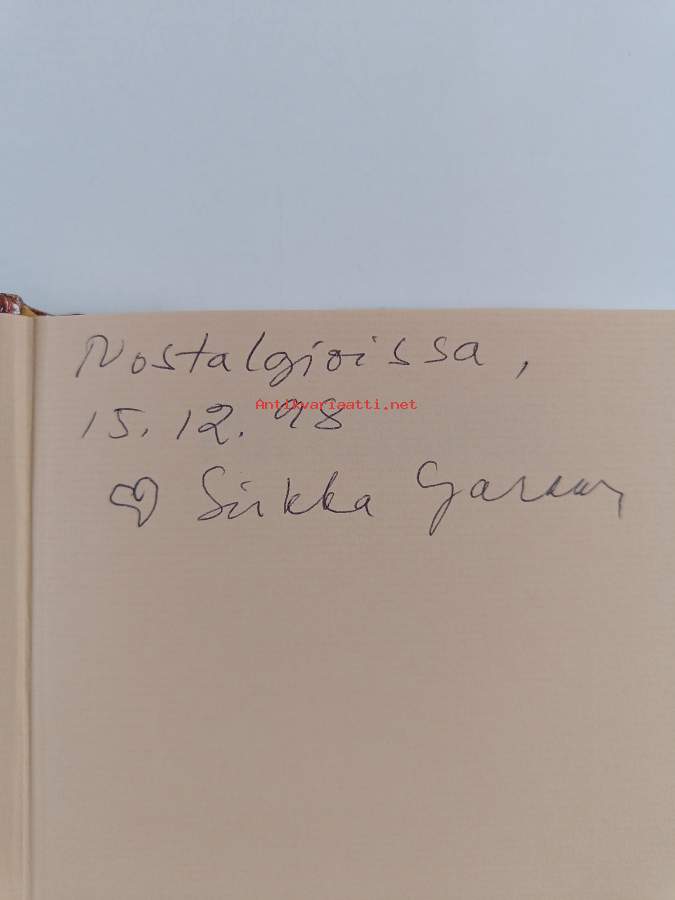 Nostalgioissa,
Antikvariaatti.net
15.12.98
♡ Sirkka Garam